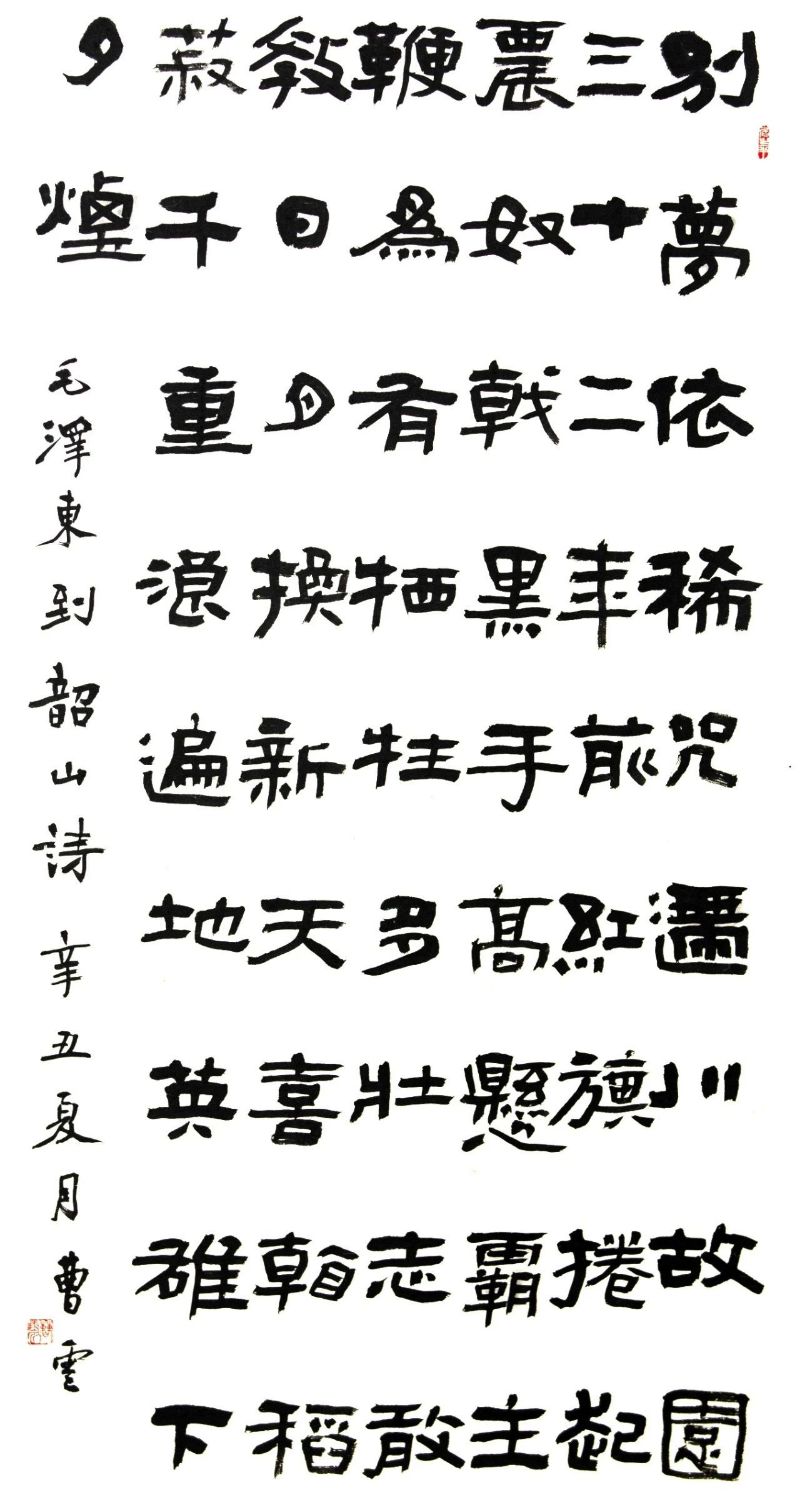 別夢依稀咒逝川故園
三十二年前紅旗捲起
農奴戟黑手高懸霸主
鞭為有牺牲多壯志敢
教日月換新天喜看稻
菽千重浪遍地英雄下
夕煙
毛澤東到韶山詩 辛丑夏月曹雲